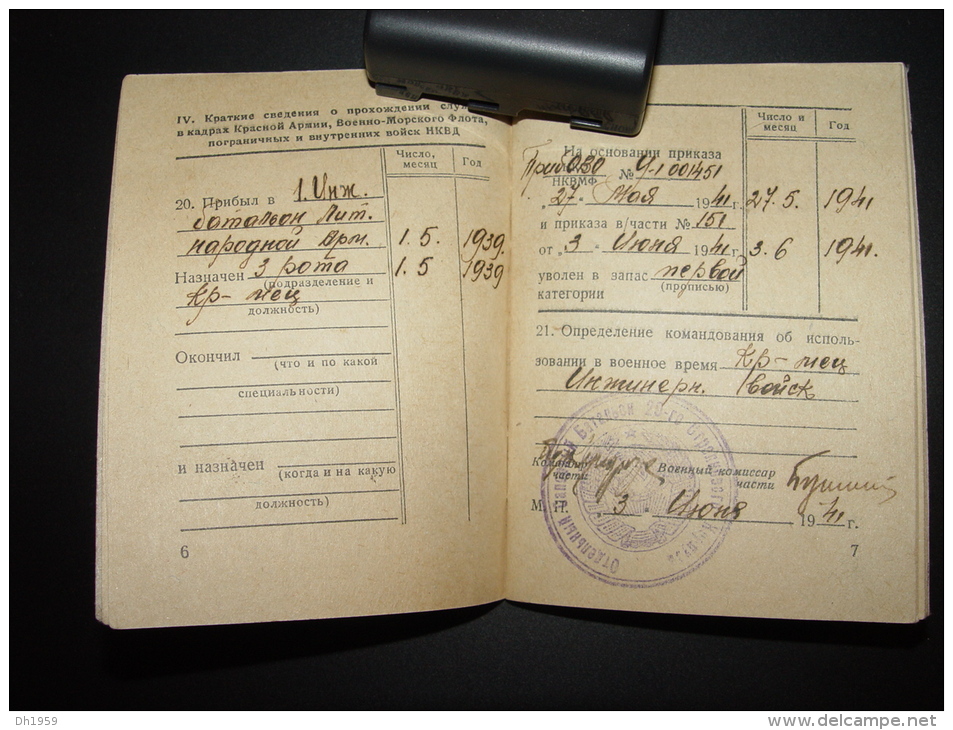 IV. Краткие сведения о прохождении служ
в кадрах Красной Армии, Военно-Морского Флота,
пограничных и внутренних войск НКВД
Число, месяц
Год
20. Прибыл в 1. Инж.
батальон Лит.
народной Арм. 1. 5. 1939.
Назначен 3 рота 1. 5 1939
(подразделение и
кр-мец
должность)
Окончил
(что и по какой
специальности)
и назначен
(когда и на какую
должность)
6
Число и месяц
Год
На основании приказа
ПрибОВО
НКВМФ №
"27" Мая 1941 г. 27. 5. 1941
и приказа в/части № 151
от "3" Июня 1941 г. 3. 6 1941.
уволен в запас первой
(прописью)
категории
21. Определение командования об исполь-
зовании в военное время кр-мец
Инжинерн. войск
Командир части
Военный комиссар части
М. П. 3 Июня 1941 г.
Отдельный Саперный Батальон 29-го Стрелкового Корпуса
7
Dh1959
www.delcampe.net